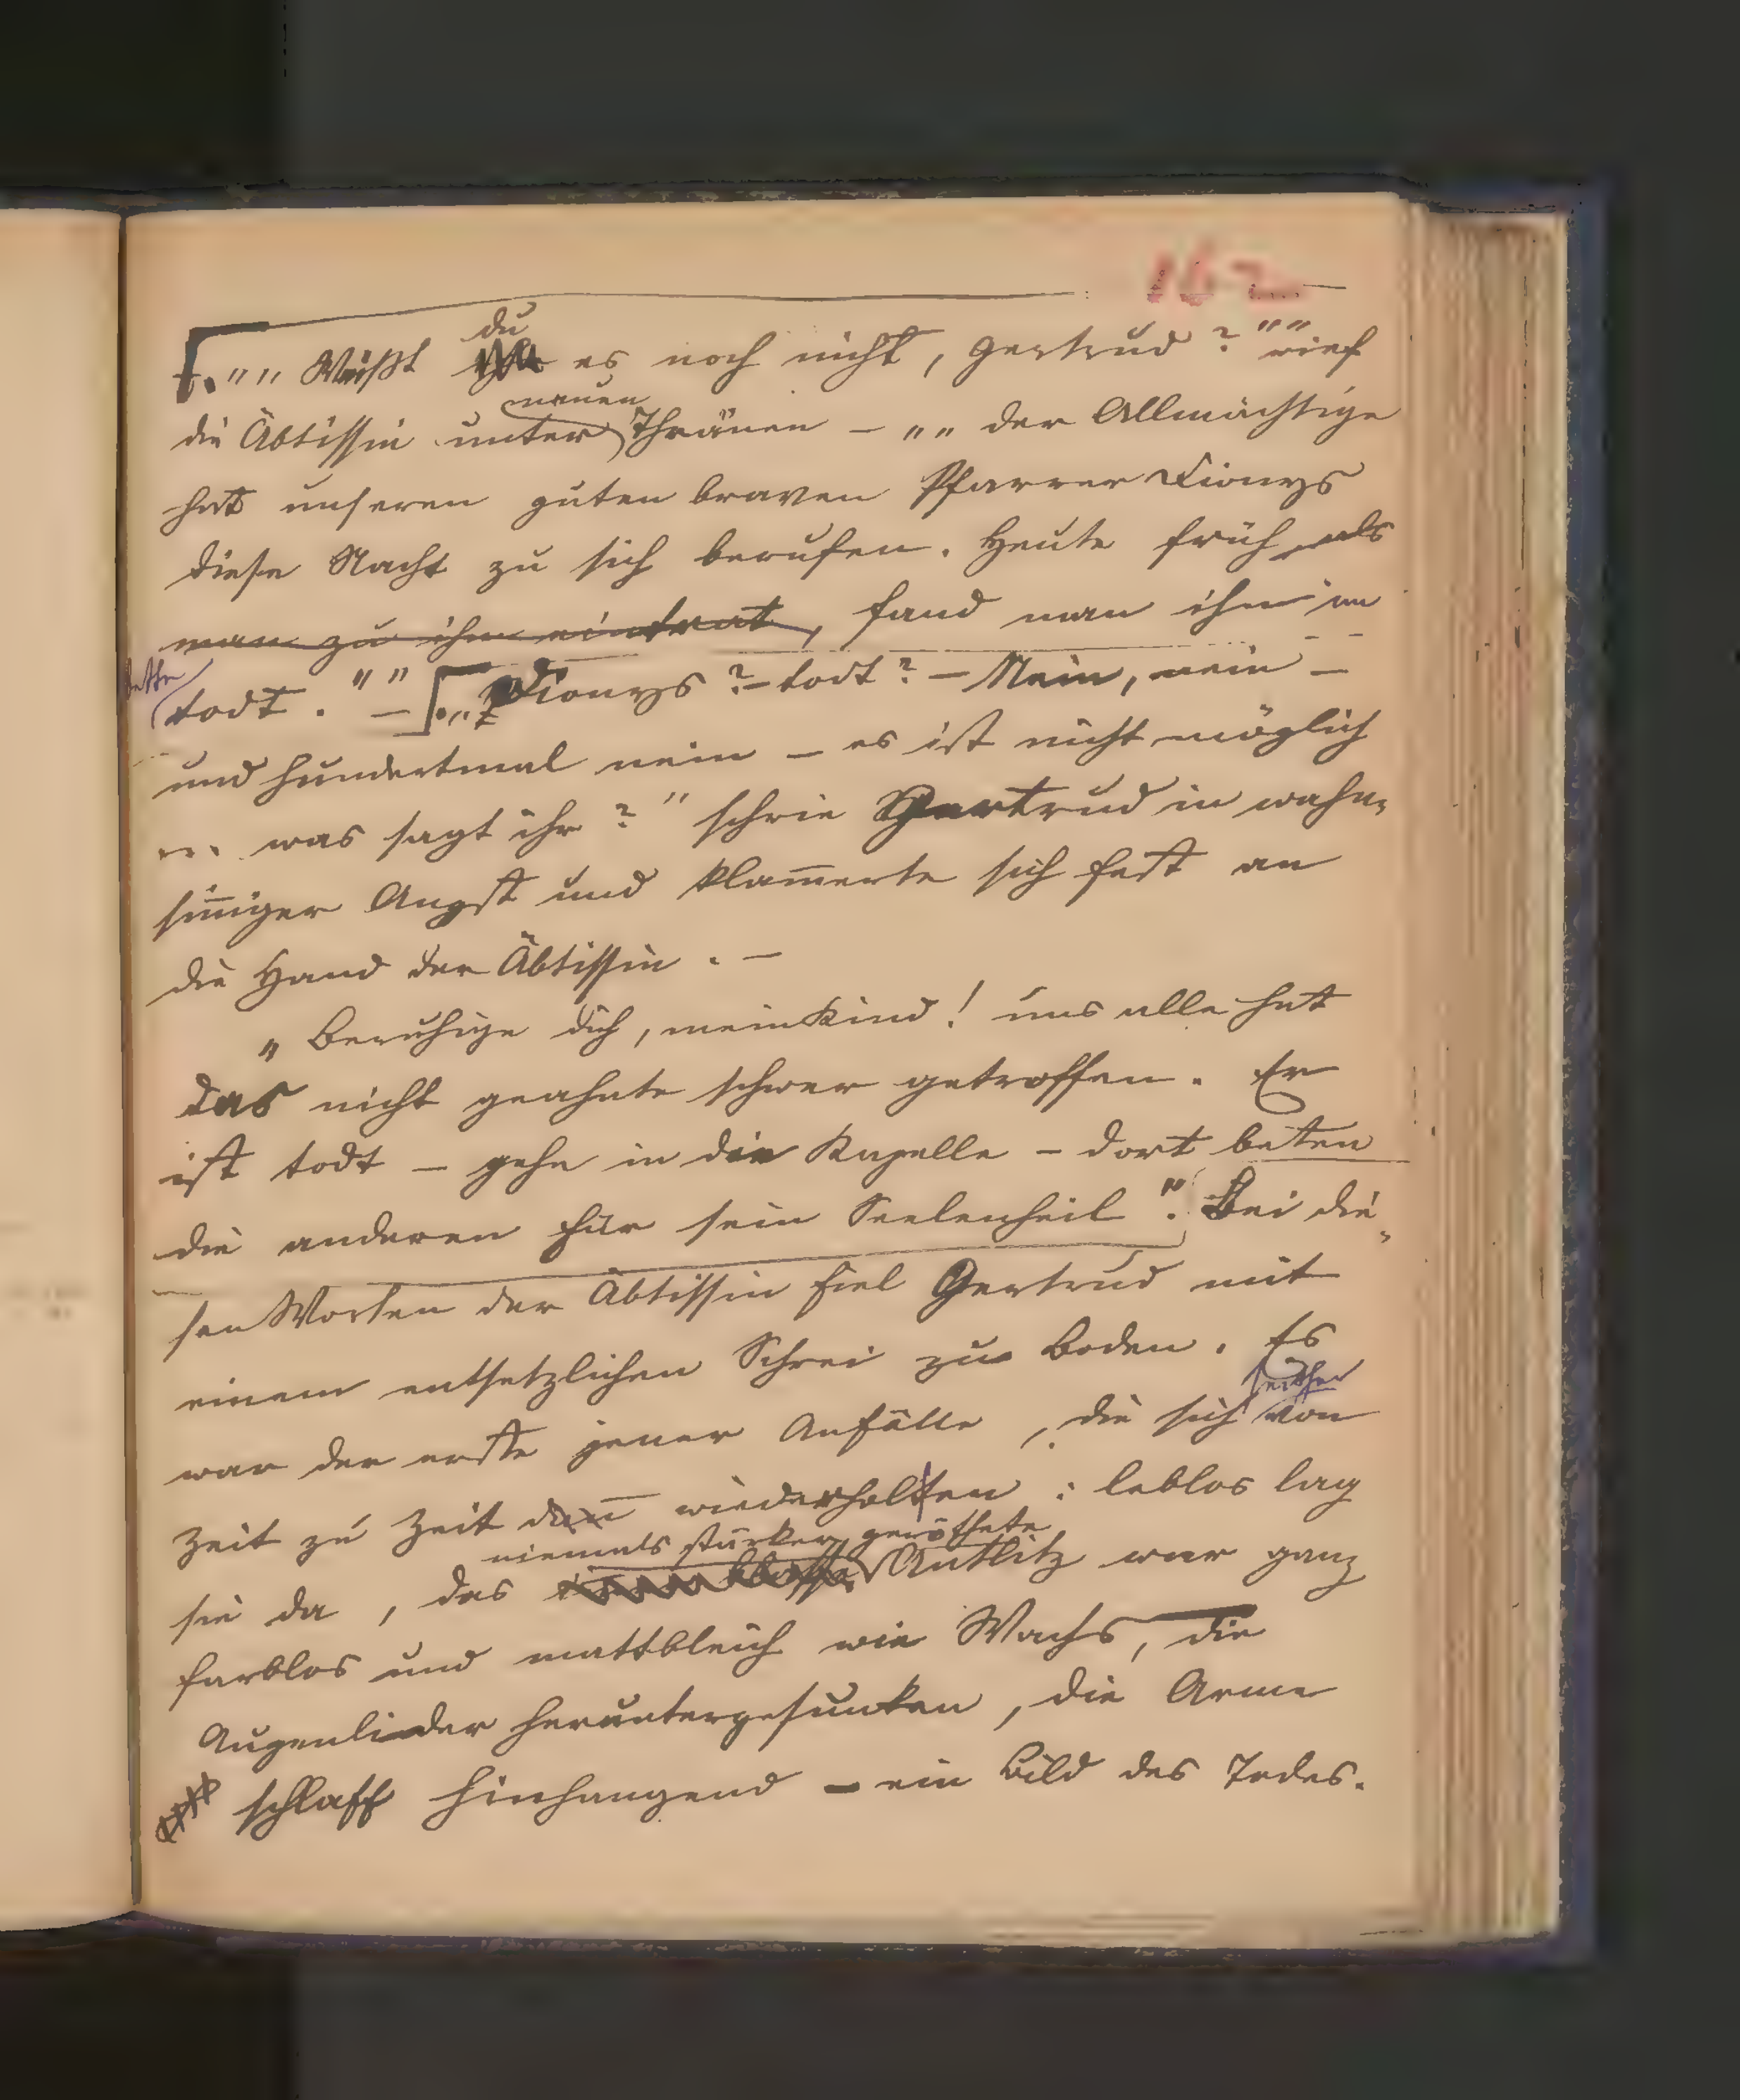 162
„„ Wißt du es noch nicht, Gertrud? ““ rief
die Äbtissin unter neuen Thränen – „„ der Allmächtige
hat unseren guten braven Pfarrer Dionys
diese Nacht zu sich berufen. Heute früh, als
man zu ihm eintrat, fand man ihn im
Bette todt. ““ – „Dionys? – todt? – Nein, nein –
und hundertmal nein – es ist nicht möglich
... was sagt ihr? “ schrie Gertrud in wahn-
sin̄iger Angst und klam̄erte sich fest an
die Hand der Äbtissin. –
„ Beruhige dich, mein Kind! uns alle hat
das nicht geahnte schwer getroffen. Er
ist todt – gehe in die Kapelle – dort beten
die anderen für sein Seelenheil “. Bei die-
sen Worten der Äbtissin fiel Gertrud mit
einem entsetzlichen Schrei zu Boden. Es
war der erste jener Anfälle, die sich seither von
Zeit zu Zeit dan̄ wiederholten: leblos lag
sie da, das niemals stärker geröthete Antlitz war ganz
farblos und mattbleich wie Wachs, die
Augenlieder heruntergesunken, die Arme
schlaff hinhangend – ein Bild des Todes.